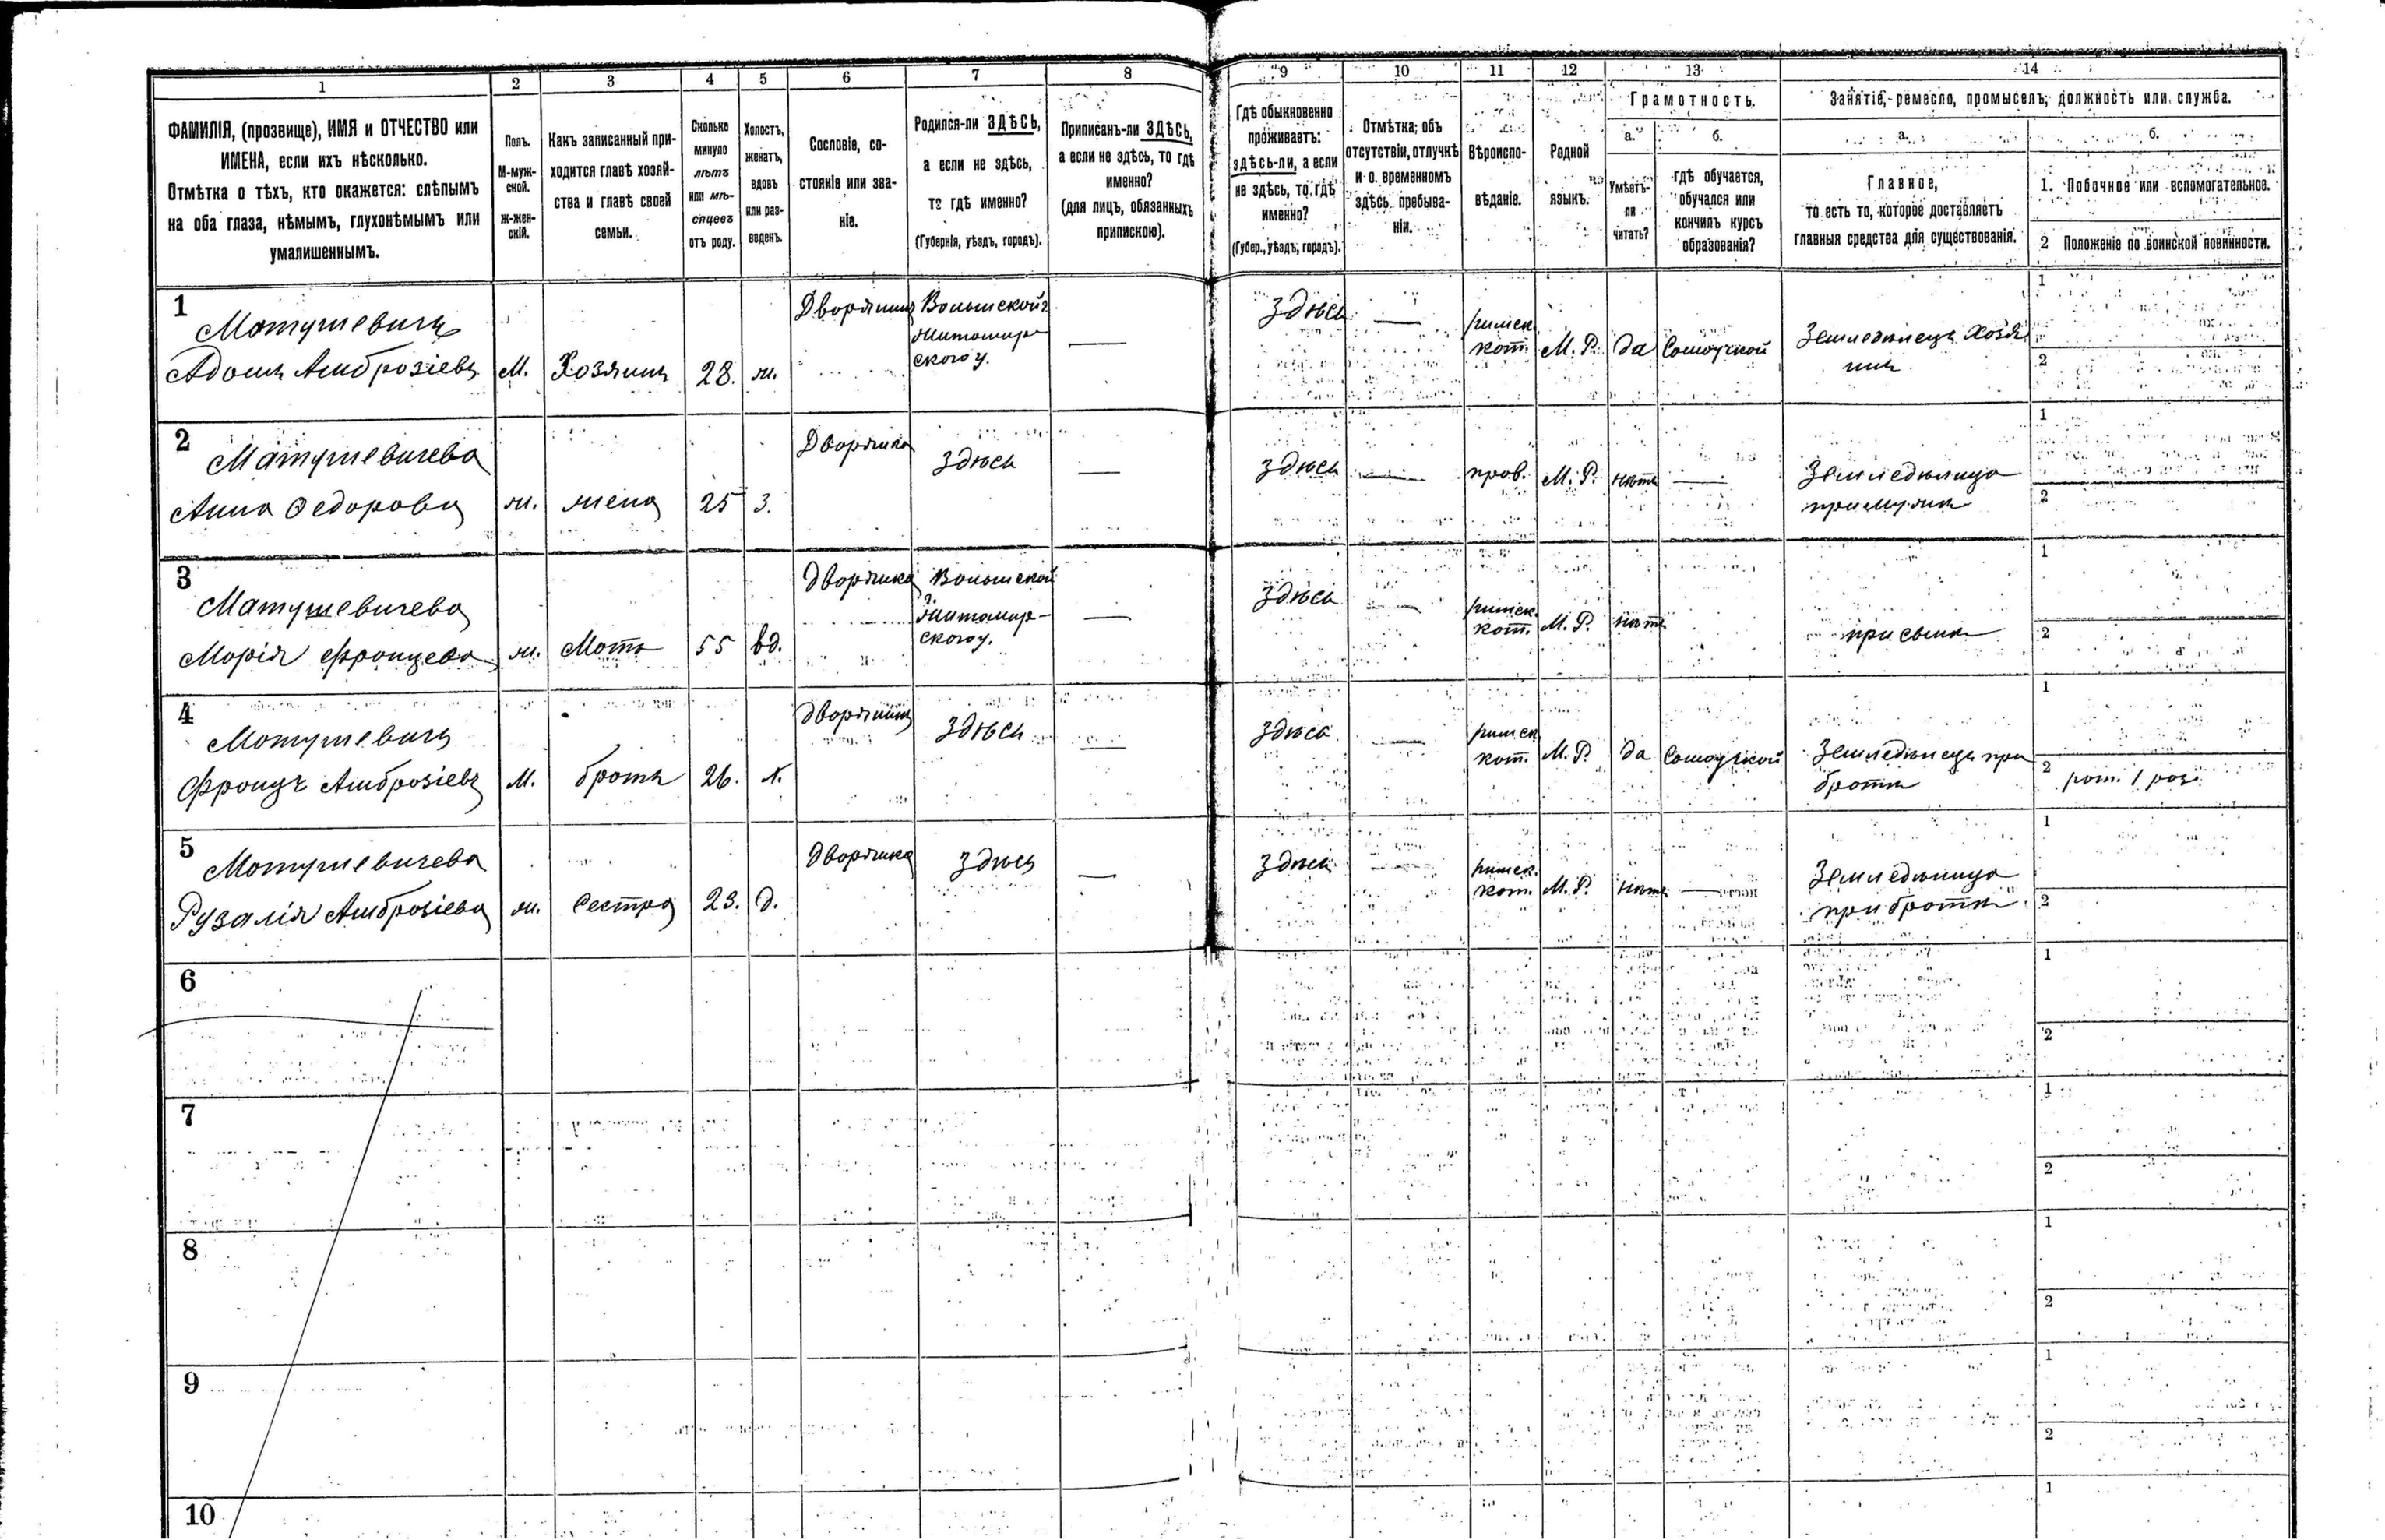 1 2 3 4 5 6 7 8 9 10 11 12 13 14
ФАМИЛІЯ, (прозвище), ИМЯ и ОТЧЕСТВО или
ИМЕНА, если ихъ нѣсколько.
Отмѣтка о тѣхъ, кто окажется: слѣпымъ
на оба глаза, нѣмымъ, глухонѣмымъ или
умалишеннымъ.
Полъ.
М-муж-
ской.
Ж-жен-
скій.
Какъ записанный при-
ходится главѣ хозяй-
ства и главѣ своей
семьи.
Сколько
минуло
лѣтъ
или мѣ-
сяцевъ
отъ роду.
Холостъ,
женатъ,
вдовъ
или раз-
веденъ.
Сословіе, со-
стояніе или зва-
ніе.
Родился-ли ЗДѢСЬ,
а если не здѣсь,
то гдѣ именно?
(Губернія, уѣздъ, городъ).
Приписанъ-ли ЗДѢСЬ,
а если не здѣсь, то гдѣ
именно?
(для лицъ, обязанныхъ
припискою).
Гдѣ обыкновенно
проживаетъ:
здѣсь-ли, а если
не здѣсь, то гдѣ
именно?
(Губер., уѣздъ, городъ).
Отмѣтка объ
отсутствіи, отлучкѣ
и о временномъ
здѣсь пребыва-
ніи.
Вѣроиспо-
вѣданіе.
Родной
языкъ.
Грамотность.
а.
Умѣетъ-
ли
читать?
б.
гдѣ обучается,
обучался или
кончилъ курсъ
образованія?
Занятіе, ремесло, промыселъ, должность или служба.
а.
Главное,
то есть то, которое доставляетъ
главныя средства для существованія.
б.
1. Побочное или вспомогательное.
2 Положеніе по воинской повинности.
1
Матушевичъ
Адамъ Амброзіевъ
М.
Хозяинъ
28.
ж.
Дворянинъ
Волынской г.
Житомир-
ского у.
—
Здѣсь
—
римск.
кат.
М. Р.
да
Земледѣлецъ Хозя
инъ
1
2
2
Матушевичева
Анна Федорова
ж.
жена
25
з.
Дворянка
Здѣсь
—
Здѣсь
—
прав.
М. Р.
нѣтъ
—
Земледѣлица
при мужѣ
1
2
3
Матушевичева
Марія Францева
ж.
Мать
55
вд.
Дворянка
Волынской
г.
Житомир-
ского у.
—
Здѣсь
—
римск.
кат.
М. Р.
нѣтъ
при сынѣ
1
2
4
Матушевичъ
Францъ Амброзіевъ
М.
братъ
26.
х.
Дворянинъ
Здѣсь
—
Здѣсь
—
римск
кат.
М. Р.
да
Земледѣлецъ при
братѣ
1
2
рат. 1 раз
5
Матушевичева
Рузалія Амброзіева
ж.
Сестра
23.
д.
Дворянка
Здѣсь
—
Здѣсь
—
римск.
кат.
М. Р.
нѣтъ
—
Земледѣлица
при братѣ
1
2
6
1
2
7
1
2
8
1
2
9
1
2
10
1